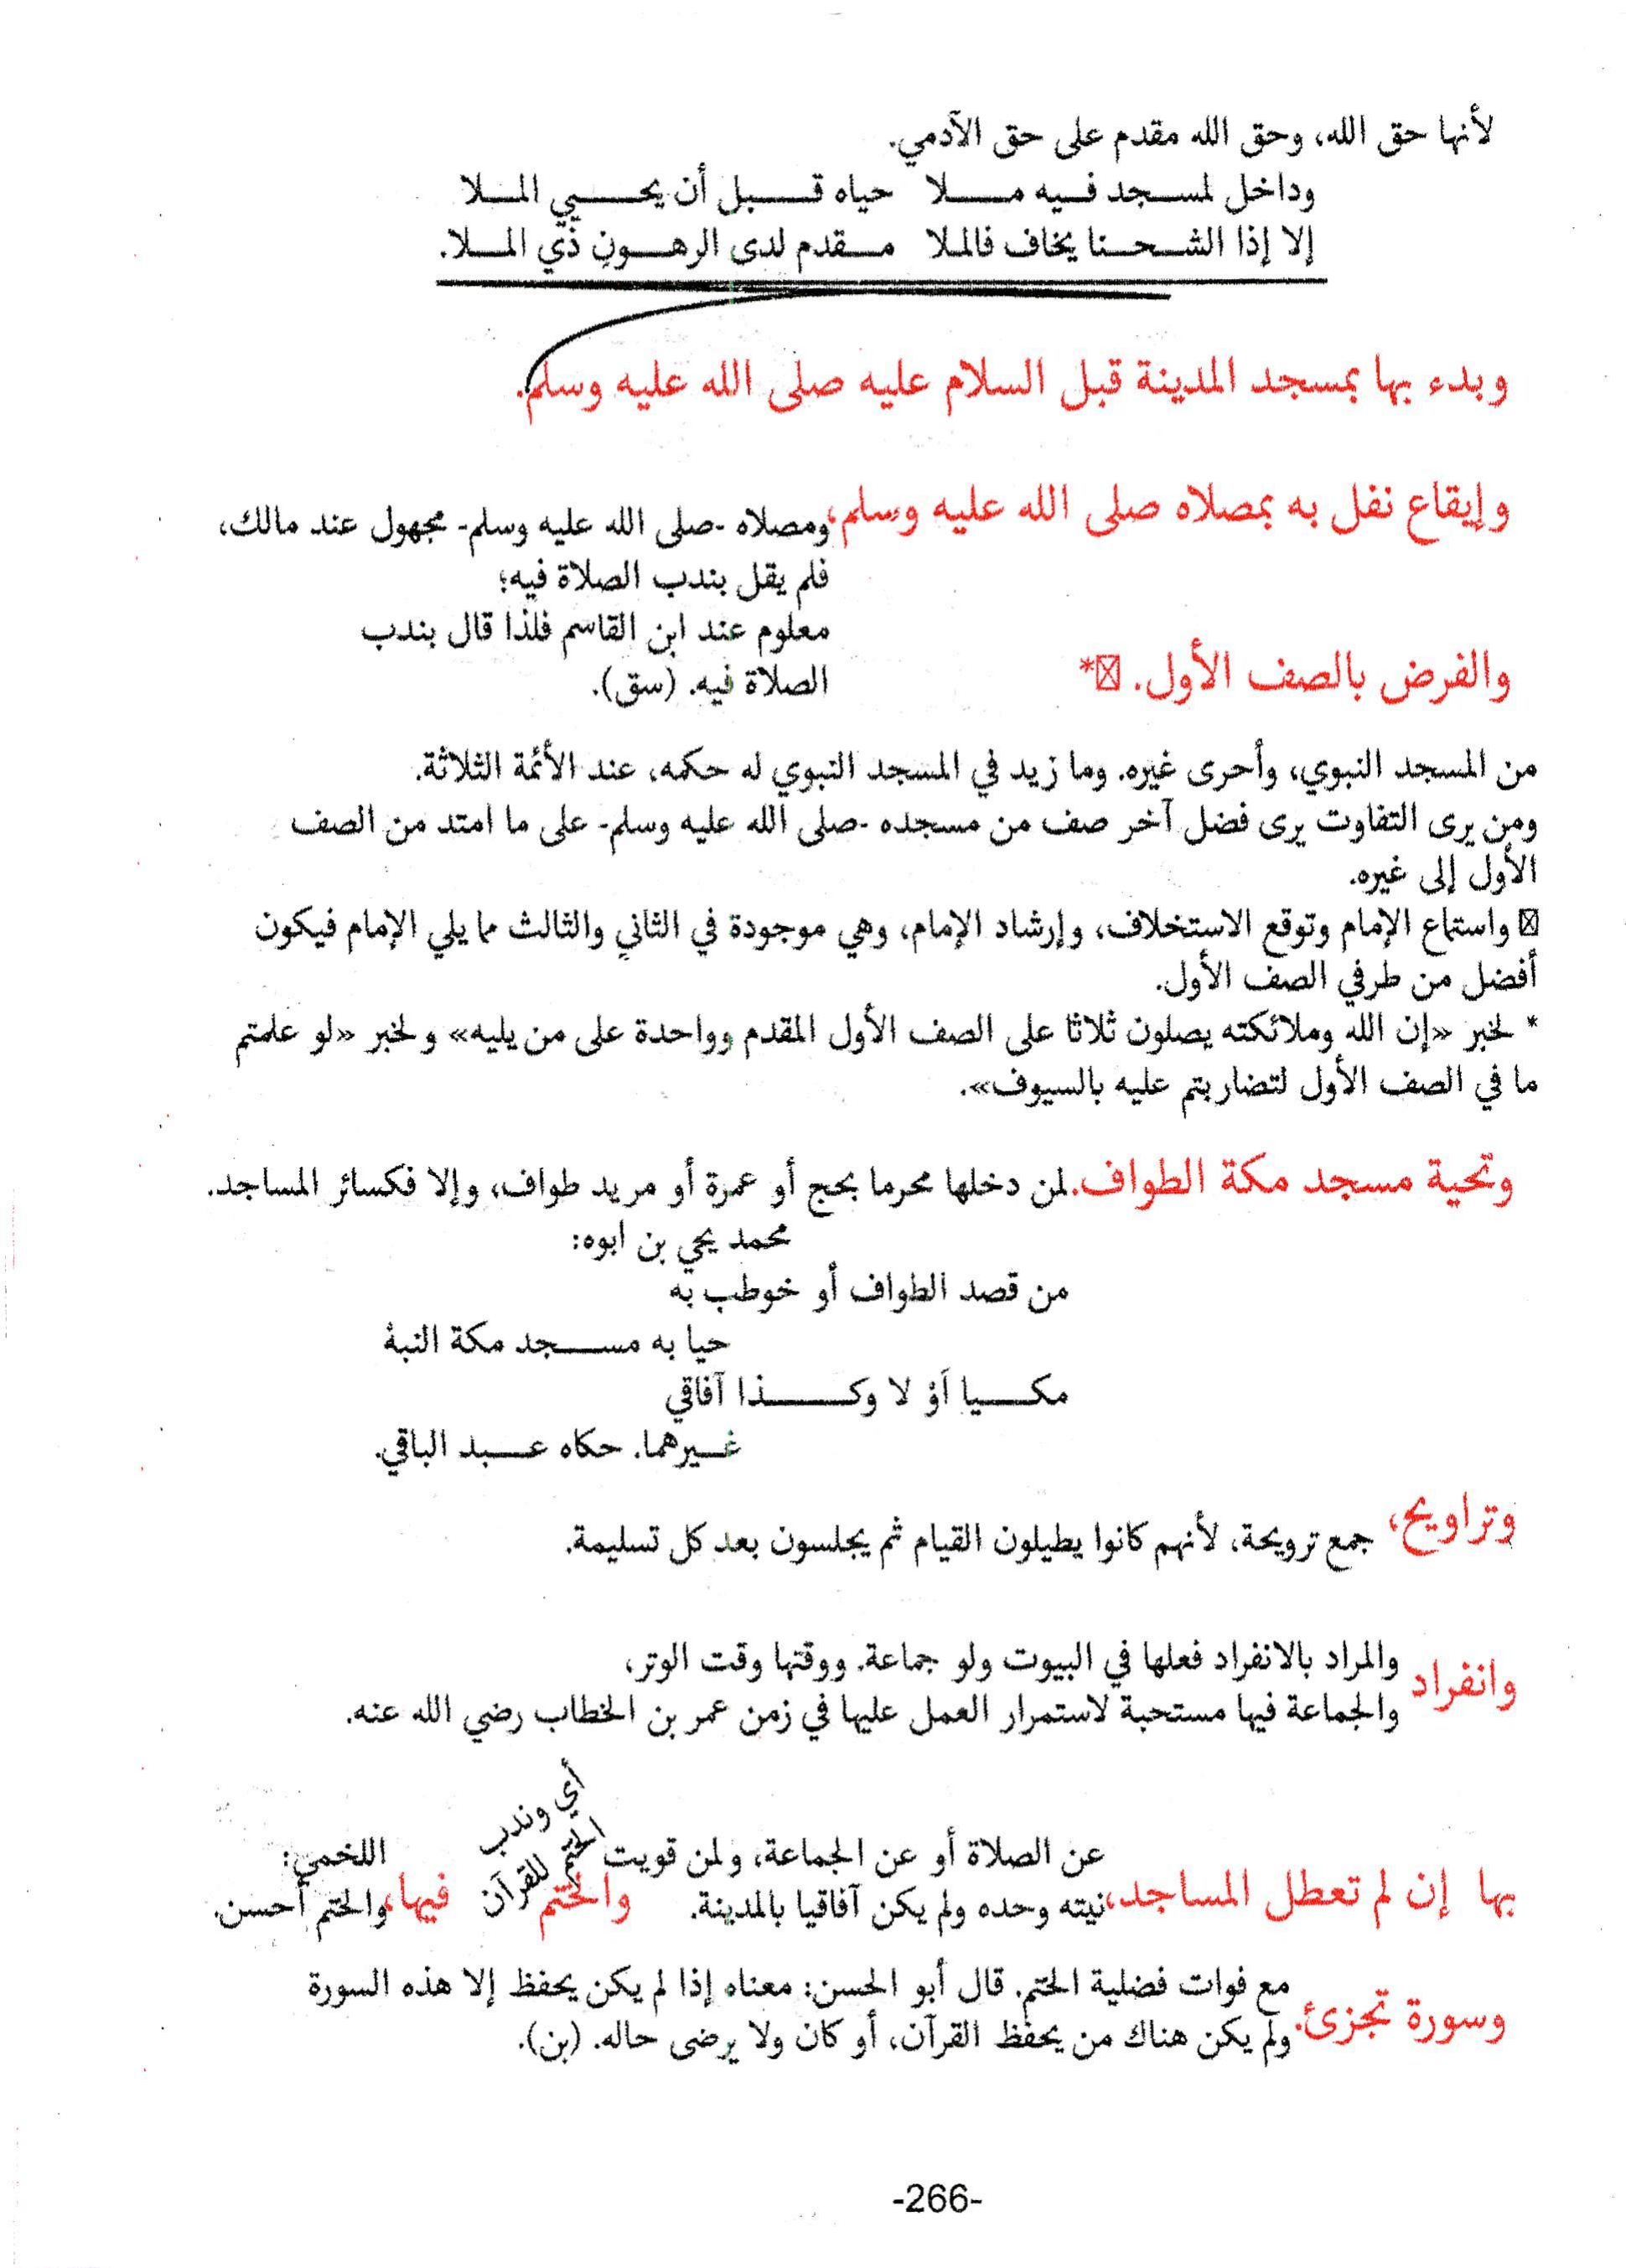 لأنها حق الله، وحق الله مقدم على حق الآدمي.
وداخل لمسجد فيه ملا حياه قبل أن يحيي الملا
إلا إذا الشحنا يخاف فالملا مقدم لدى الرهونِ ذي الملا.
وبدء بها بمسجد المدينة قبل السلام عليه صلى الله عليه وسلم.
وإيقاع نفل به بمصلاه صلى الله عليه وسلم، ومصلاه -صلى الله عليه وسلم- مجهول عند مالك،
فلم يقل بندب الصلاة فيه؛
معلوم عند ابن القاسم فلذا قال بندب
الصلاة فيه. (سق).
والفرض بالصف الأول. *
من المسجد النبوي، وأحرى غيره. وما زيد في المسجد النبوي له حكمه، عند الأئمة الثلاثة.
ومن يرى التفاوت يرى فضل آخر صف من مسجده -صلى الله عليه وسلم- على ما امتد من الصف
الأول إلى غيره.
واستماع الإمام وتوقع الاستخلاف، وإرشاد الإمام، وهي موجودة في الثاني والثالث مما يلي الإمام فيكون
أفضل من طرفي الصف الأول.
* لخبر «إن الله وملائكته يصلون ثلاثا على الصف الأول المقدم وواحدة على من يليه» ولخبر «لو علمتم
ما في الصف الأول لتضاربتم عليه بالسيوف».
وتحية مسجد مكة الطواف. لمن دخلها محرما بحج أو عمرة أو مريد طواف، وإلا فكسائر المساجد.
محمد يحي بن ابوه:
من قصد الطواف أو خوطب به
حيا به مسجد مكة النبهْ
مكيا اَوْ لا وكذا آفاقي
غيرهما. حكاه عبد الباقي.
وتراويح، جمع ترويحة، لأنهم كانوا يطيلون القيام ثم يجلسون بعد كل تسليمة.
وانفراد والمراد بالانفراد فعلها في البيوت ولو جماعة. ووقتها وقت الوتر،
والجماعة فيها مستحبة لاستمرار العمل عليها في زمن عمر بن الخطاب رضي الله عنه.
بها إن لم تعطل المساجد، عن الصلاة أو عن الجماعة، ولمن قويت
نيته وحده ولم يكن آفاقيا بالمدينة.
والختم
أي وندب
الختم للقرآن
فيها، اللخمي:
والختم أحسن.
وسورة تجزئ. مع فوات فضلية الختم. قال أبو الحسن: معناه إذا لم يكن يحفظ إلا هذه السورة
ولم يكن هناك من يحفظ القرآن، أو كان ولا يرضى حاله. (بن).
-266-